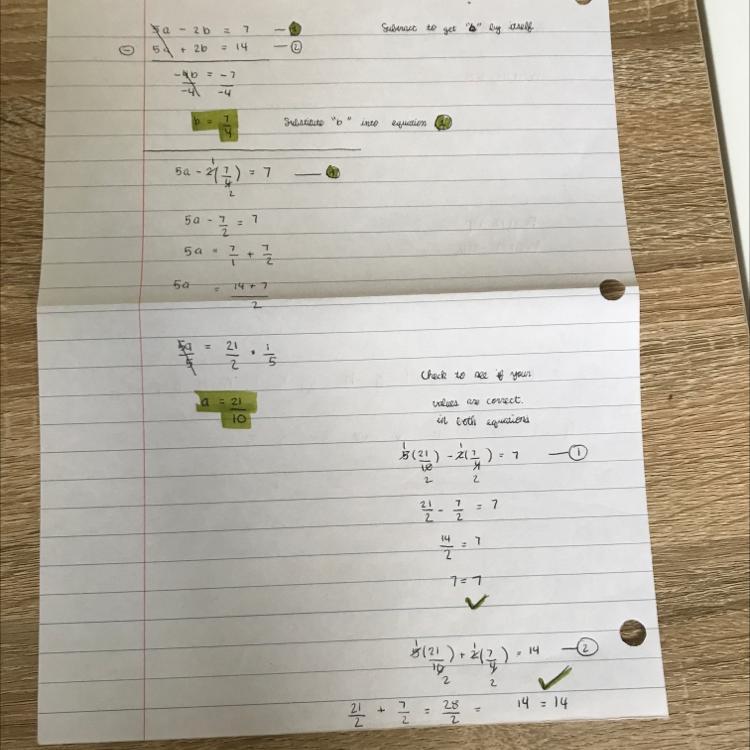 5a - 2b = 7 — 1 Subtract to get "b" by itself
(-) 5a + 2b = 14 — 2
-4b/-4 = -7/-4
b = 7/4 Substitute "b" into equation 1
5a - 2(7/4) = 7 — 1
1 2
5a - 7/2 = 7
5a = 7/1 + 7/2
5a = 14 + 7/2
5a/5 = 21/2 · 1/5
a = 21/10
Check to see if your
values are correct.
in both equations
5(21/10) - 2(7/4) = 7 — 1
1 2 1 2
21/2 - 7/2 = 7
14/2 = 7
7 = 7
✓
5(21/10) + 2(7/4) = 14 — 2
1 2 1 2
21/2 + 7/2 = 28/2 = 14 = 14 ✓